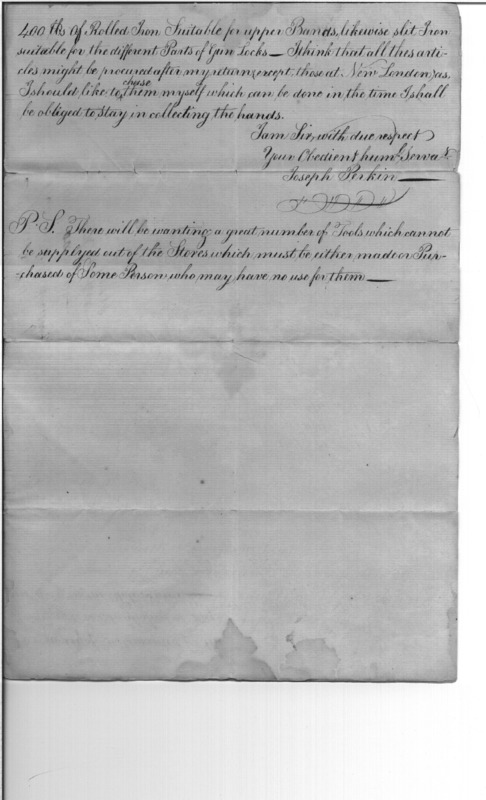 400 lb of Rolled Iron Suitable for upper Bands, likewise slit Iron
suitable for the different Parts of Gun Locks — I think that all thes arti-
cles might be procured after my return, except those at New London, as,
chuse
I should like to them myself which can be done in the time I shall
be obliged to stay in collecting the hands.
I am Sir, with due respect
Your Obedient huml Servant
Joseph Perkin —
P. S. There will be wanting a great number of Tools which cannot
be supplyed out of the Stores which must be either made or Pur-
-chased of Some Person who may have no use for them —